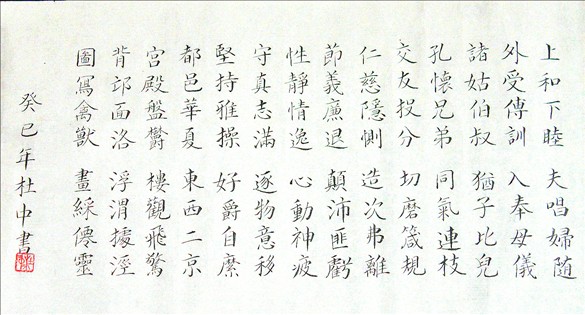 上和下睦 夫唱婦随
外受傅訓 入奉母儀
諸姑伯叔 猶子比兒
孔懷兄弟 同氣連枝
交友投分 切磨箴規
仁慈隱惻 造次弗離
節義廉退 顛沛匪虧
性靜情逸 心動神疲
守真志滿 逐物意移
堅持雅操 好爵自縻
都邑華夏 東西二京
背邙面洛 浮渭據涇
宮殿盤鬱 樓觀飛驚
圖寫禽獸 畫綵僊靈
癸巳年杜中書